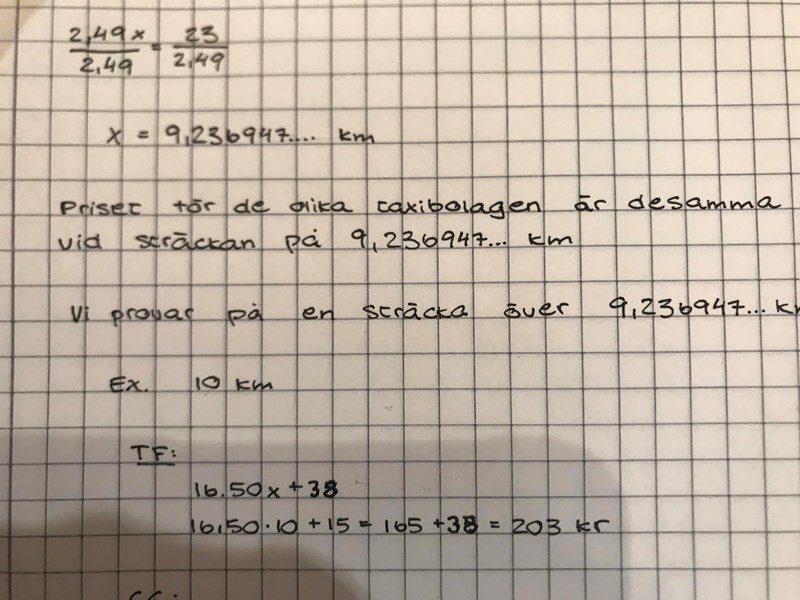 2,49x / 2,49 = 23 / 2,49
x = 9,236947.... km
Priset för de olika taxibolagen är desamma
vid sträckan på 9,236947... km
Vi provar på en sträcka över 9,236947... km
Ex. 10 km
TF:
16.50x + 38
16,50·10 + 15 = 165 + 38 = 203 kr